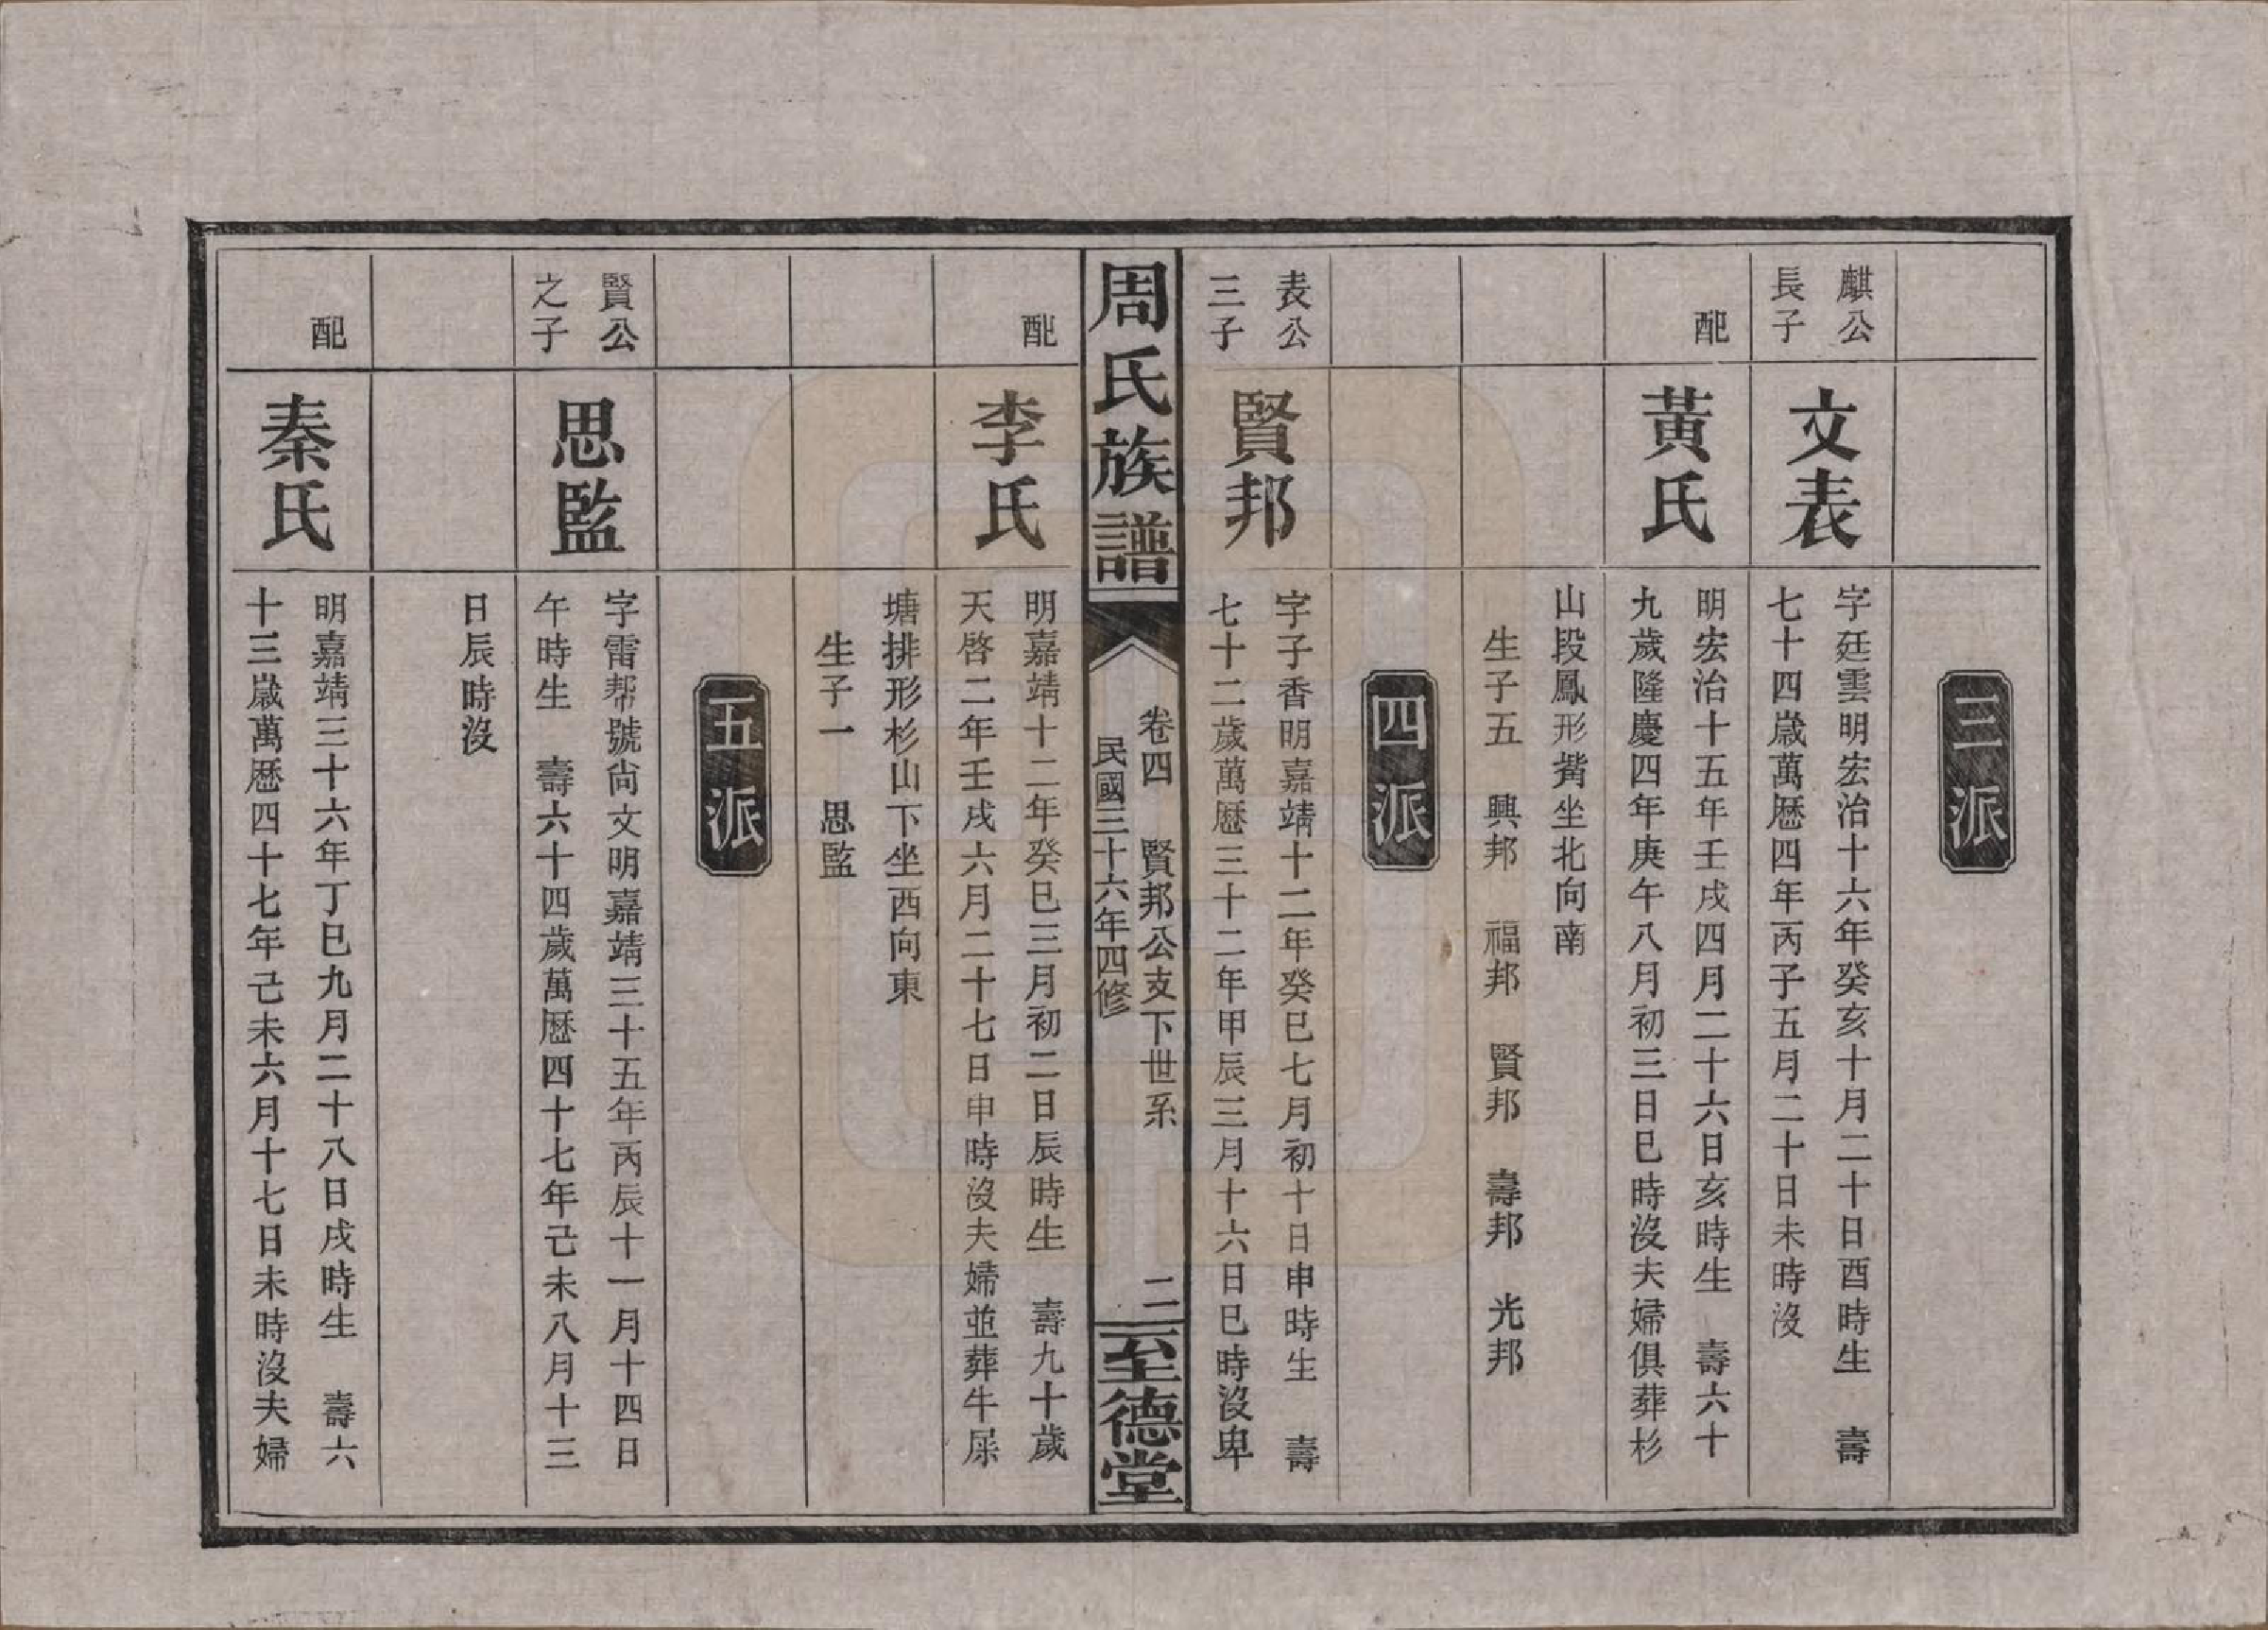 三派
麒公
長子
文表
字廷雲明宏治十六年癸亥十月二十日酉時生　壽
七十四歲萬曆四年丙子五月二十日未時沒
配
黃氏
明宏治十五年壬戌四月二十六日亥時生　壽六十
九歲隆慶四年庚午八月初三日巳時沒夫婦俱葬杉
山段鳳形觜坐北向南
生子五　興邦　福邦　賢邦　壽邦　光邦
四派
表公
三子
賢邦
字子香明嘉靖十二年癸巳七月初十日申時生　壽
七十二歲萬曆三十二年甲辰三月十六日巳時沒卑
周氏族譜
卷四　賢邦公支下世系
民國三十六年四修
二
至德堂
配
李氏
明嘉靖十二年癸巳三月初二日辰時生　壽九十歲
天啓二年壬戌六月二十七日申時沒夫婦並葬牛屎
塘排形杉山下坐西向東
生子一　思監
五派
賢公
之子
思監
字雷帮號尚文明嘉靖三十五年丙辰十一月十四日
午時生　壽六十四歲萬曆四十七年己未八月十三
日辰時沒
配
秦氏
明嘉靖三十六年丁巳九月二十八日戌時生　壽六
十三歲萬曆四十七年己未六月十七日未時沒夫婦